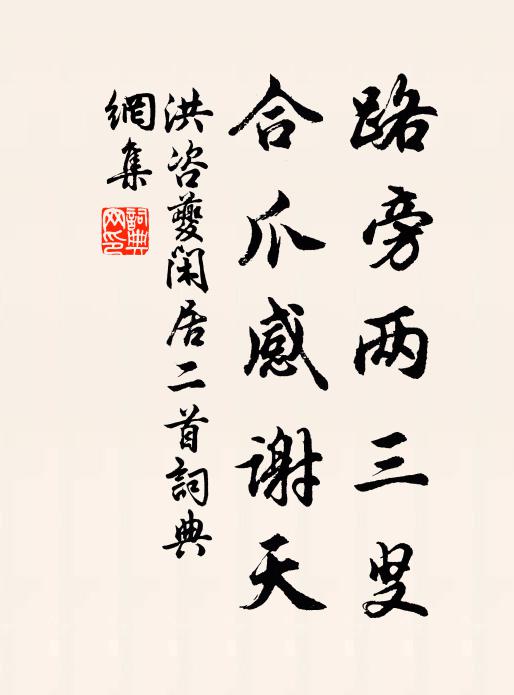 路旁两三叟
合爪感謝天
洪咨夔閑居二首詞典
網集
詞典
网印